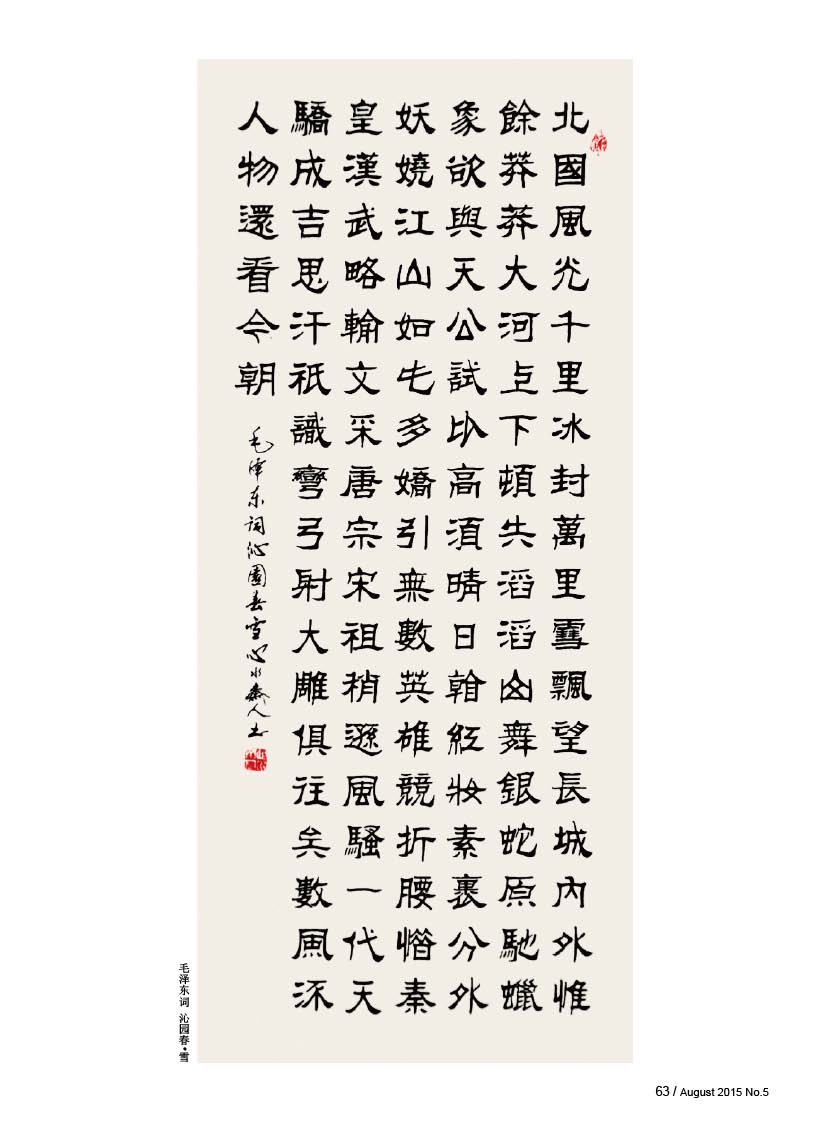 北國風光千里冰封萬里雪飄望長城內外惟
餘莽莽大河上下頓失滔滔山舞銀蛇原馳蠟
象欲與天公試比高須晴日看紅妝素裹分外
妖嬈江山如此多嬌引無數英雄競折腰惜秦
皇漢武略輸文采唐宗宋祖稍遜風騷一代天
驕成吉思汗祇識彎弓射大雕俱往矣數風流
人物還看今朝
毛泽东词沁園春雪心水斋人书
毛泽东词 沁园春·雪
63 / August 2015 No.5